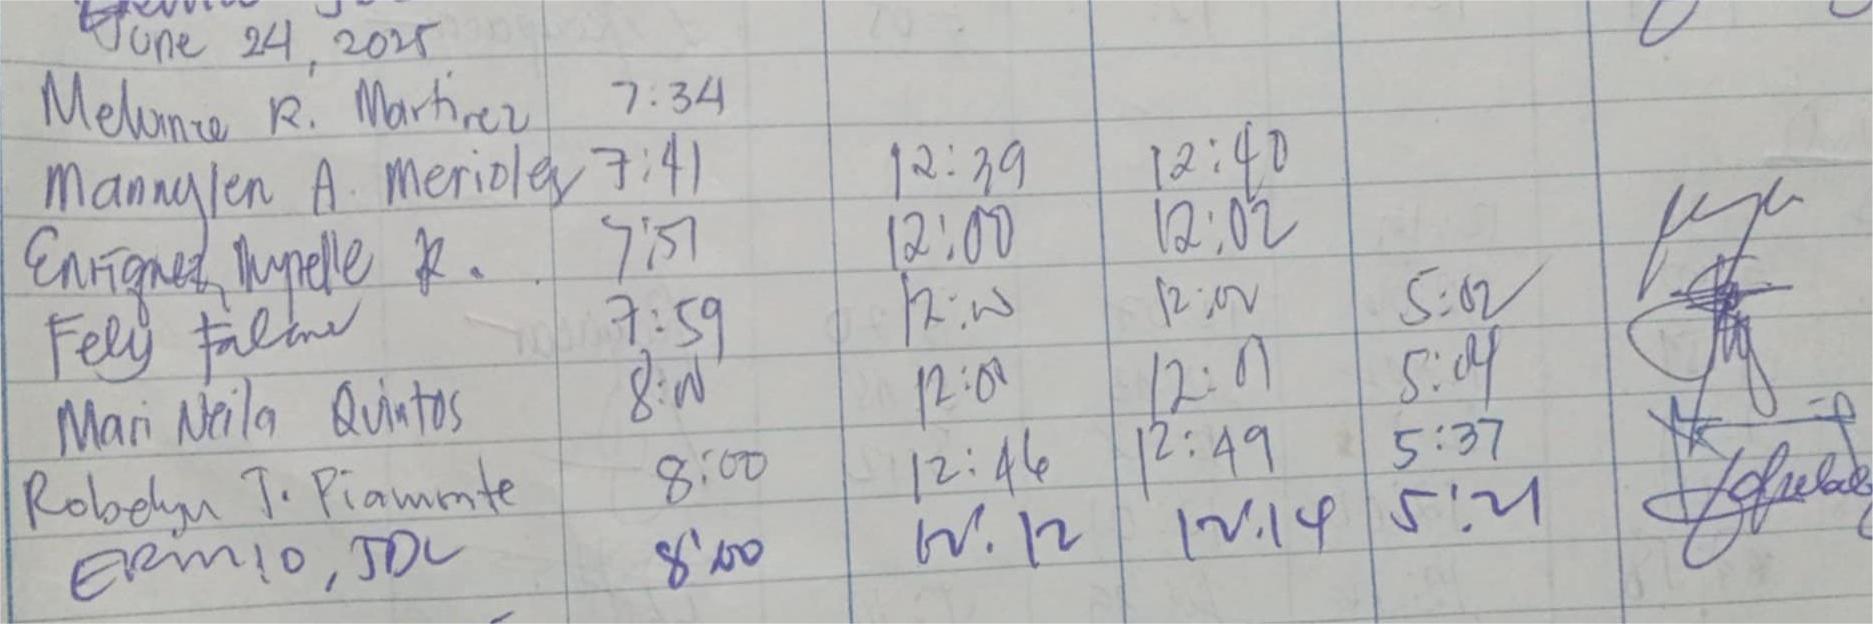 June 24, 2025
Melvinze R. Martinez 7:34
Mannylen A. Merioles 7:41 12:39 12:40
Enriquez, Mypelle R. 7:51 12:00 12:02
Fely 7:59 12:00 12:02 5:02
Mari Neila Quintos 8:00 12:01 12:01 5:04
Robelyn J. Piamonte 8:00 12:46 12:49 5:37
ERMIO, JDL 8:00 12:12 12:14 5:21